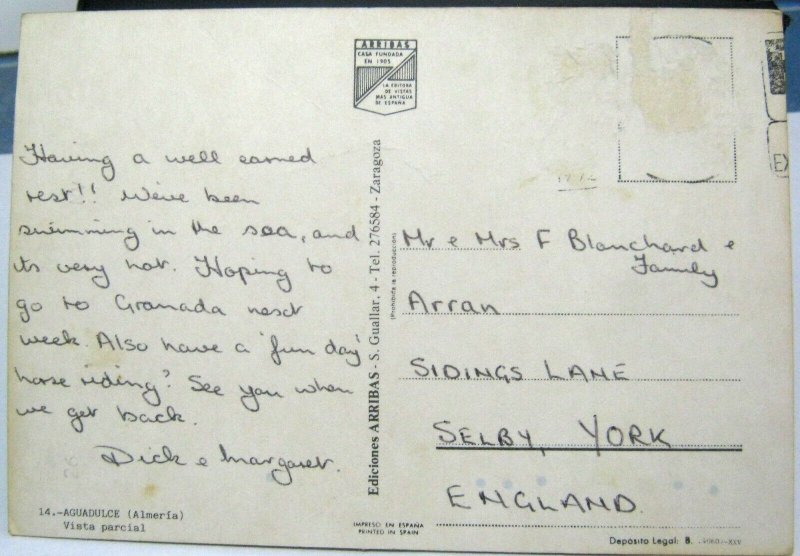 ARRIBAS
CASA FUNDADA
EN 1905
LA EDITORA
DE VISTAS
MAS ANTIGUA
DE ESPAÑA
Having a well earned
rest!! We've been
swimming in the sea, and
its very hot. Hoping to
go to Granada next
week. Also have a 'fun day'
horse riding? See you when
we get back.
Dick & Margaret.
14.-AGUADULCE (Almería)
Vista parcial
Ediciones ARRIBAS - S. Guallar, 4 - Tel. 276584 - Zaragoza
(Prohibida la reproducción)
IMPRESO EN ESPAÑA
PRINTED IN SPAIN
Mr & Mrs F Blanchard &
Family
Arran
SIDINGS LANE
SELBY, YORK
ENGLAND.
Depósito Legal: B. -XXV
EX